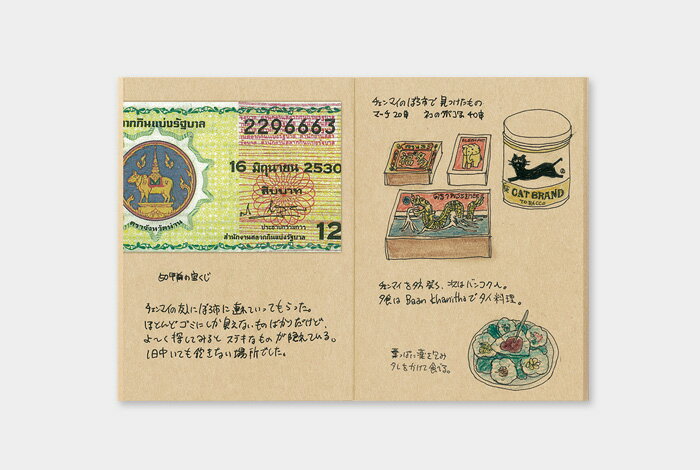 ากกินแบ่งรัฐบาล
2296663
16 มิถุนายน 2530
สิบบาท
ประธานกรรมการ
สำนักงานสลากกินแบ่งรัฐบาล
12
ตราจังหวัดน่าน
50年前の宝くじ
チェンマイの友人にぼろ市に連れていってもらった。
ほとんどゴミにしか見えないものばかりだけど、
よ〜く探してみると ステキなものが隠れている。
1日中いても飽きない場所でした。
チェンマイのぼろ市で見つけたもの
マッチ 20B ネコのタバコ缶 40B
CAT BRAND
TOBACCO
チェンマイを夕方発ち、次はバンコクへ。
夕食は Baan Khanitha でタイ料理。
葉っぱに薬を包み
タレをかけて食べる。